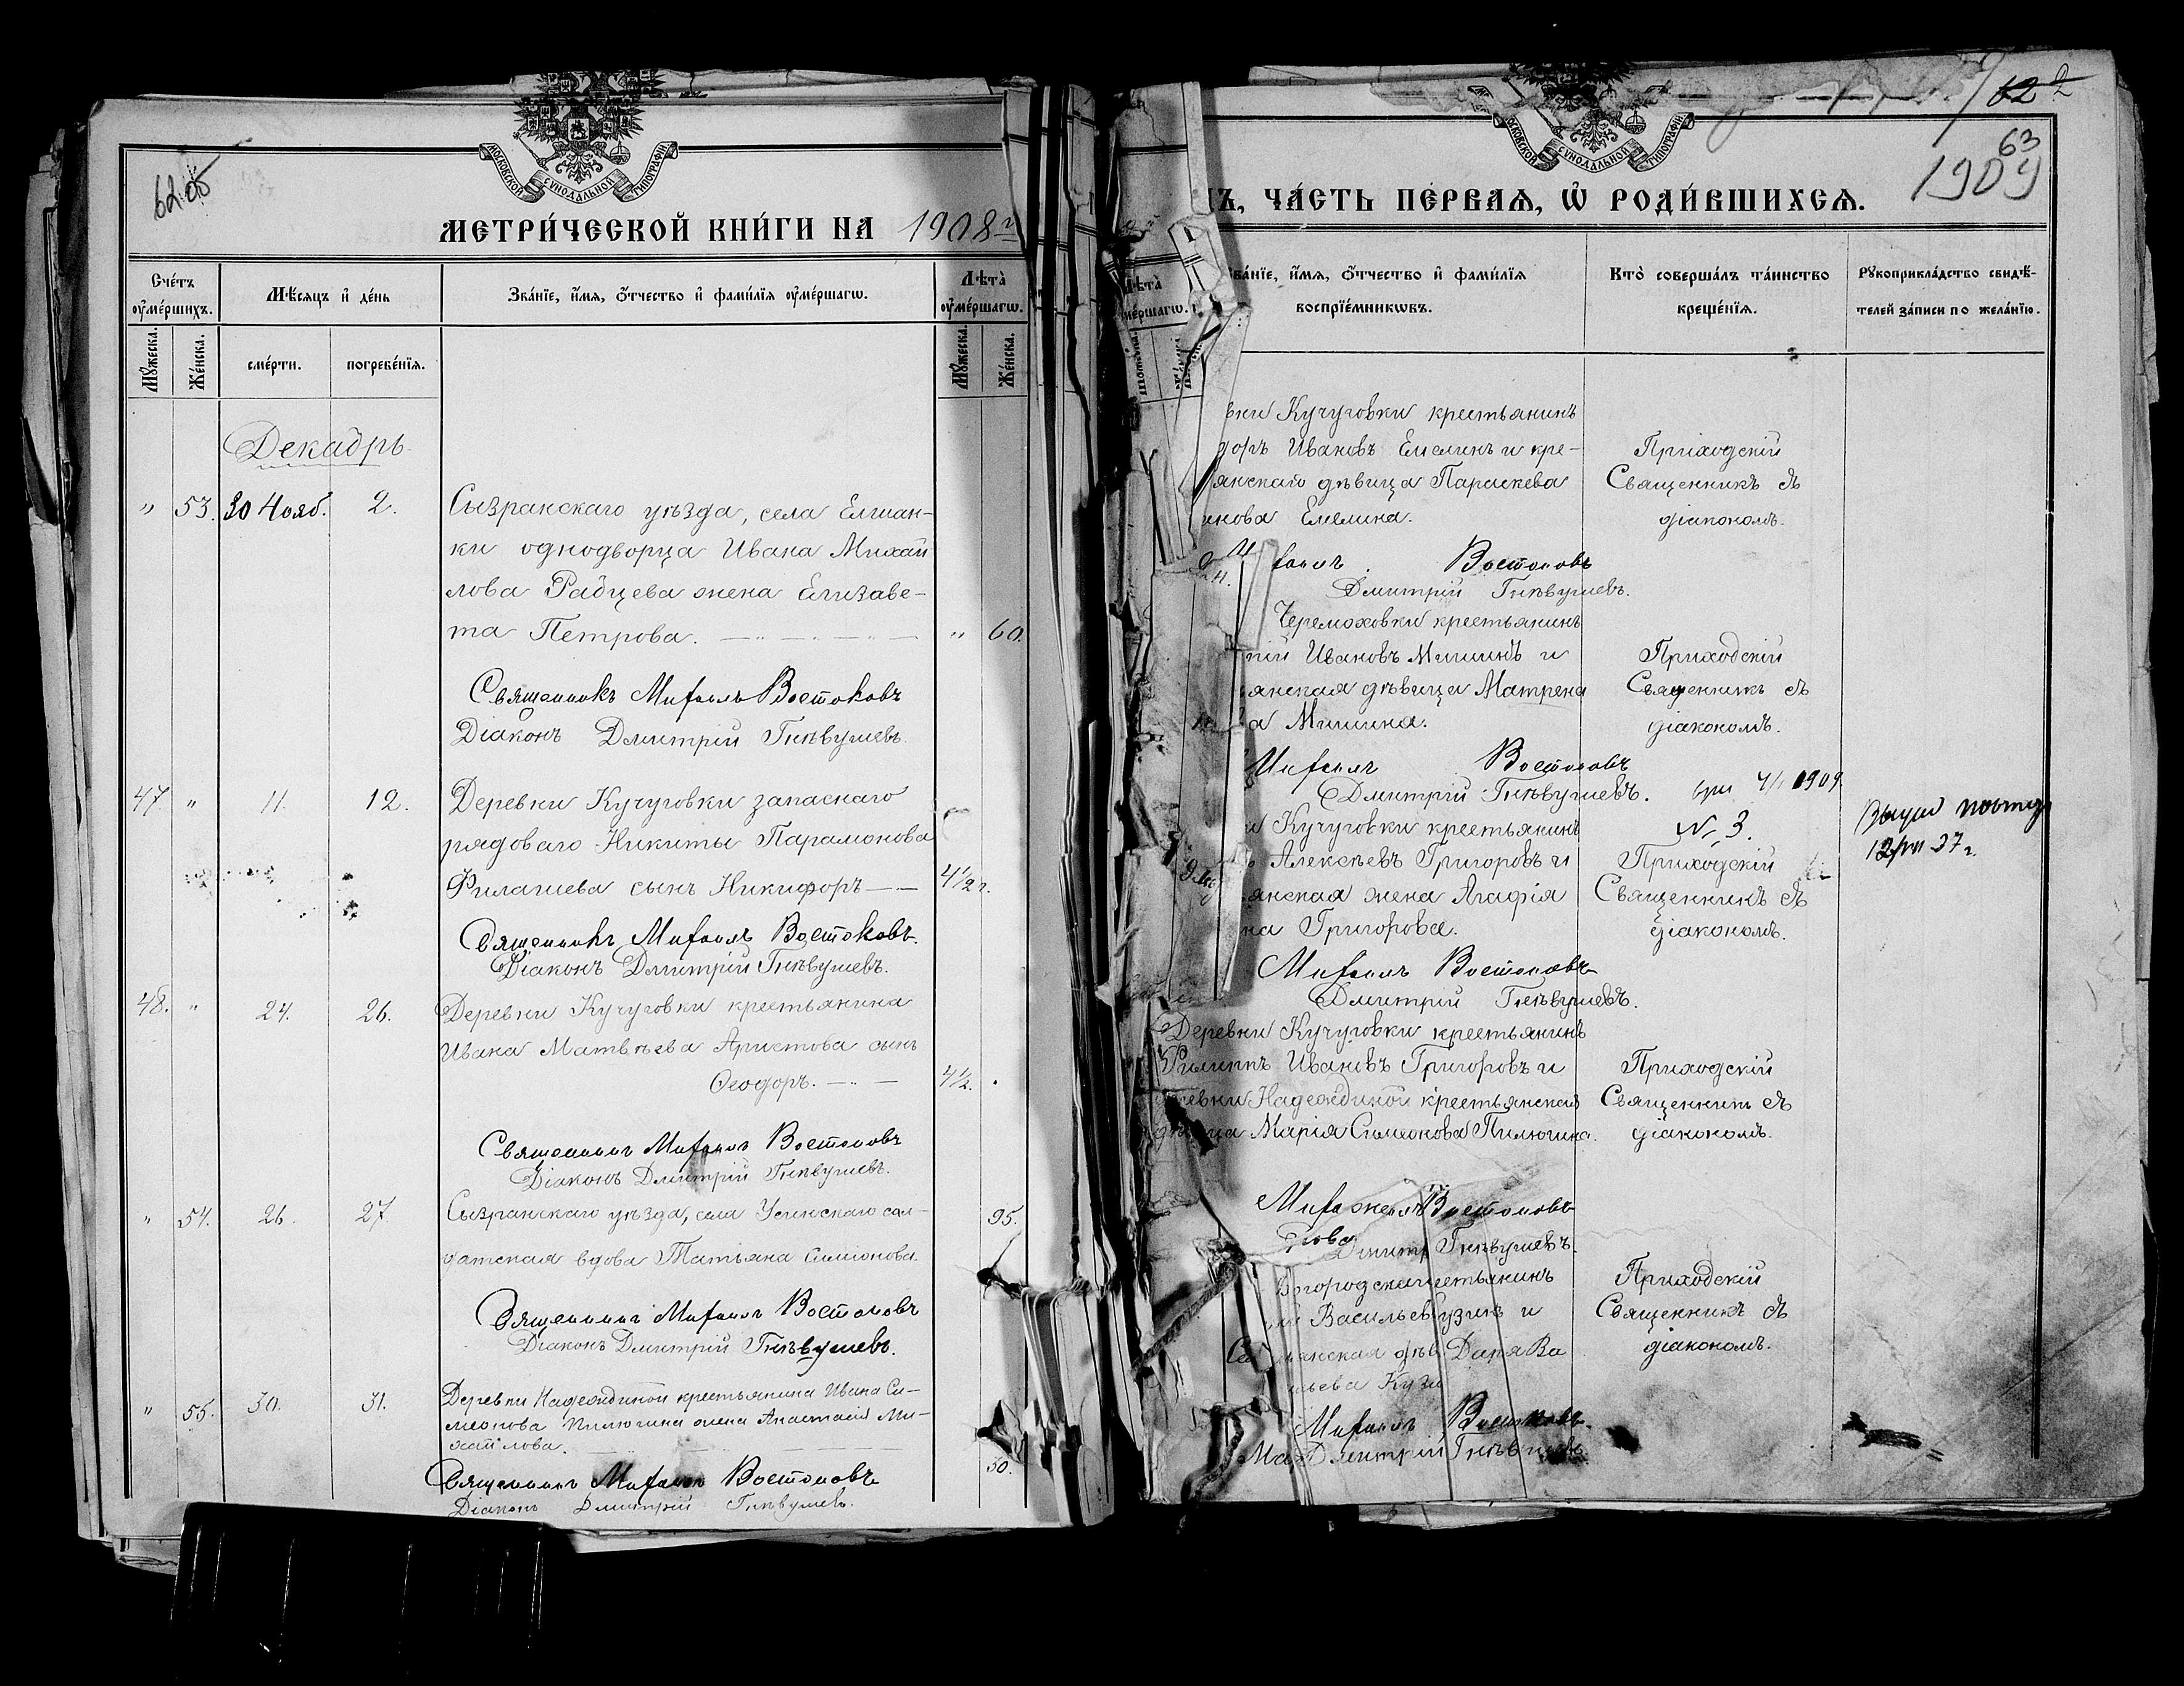 62 об
МОСКОВСКОЙ СѴНОДАЛЬНОЙ ТИПОГРАФІИ
МЕТРИ́ЧЕСКОЙ КНИ́ГИ НА 1908 г
Сче́тъ ᲂу҆ме́ршихъ.
Мѣ́сѧцъ и҆ де́нь
Зва́нїе, и҆́мѧ, ѻ҆́тчество и҆ фами́лїѧ ᲂу҆ме́ршагѡ.
Лѣ̀та ᲂу҆ме́ршагѡ.
Мꙋ́жеска.
Же́нска.
сме́рти.
погребе́нїѧ.
Мꙋ́жеска.
Же́нска.
Декабрь
" 53. 30 Нояб. 2. Сызранскаго уѣзда, села Елшан-
ки однодворца Ивана Михай
лова Рабцева жена Елизаве-
та Петрова. " 60.
Священникъ Михаилъ Востоковъ
Діаконъ Дмитрій Гнѣвушевъ.
47 " 11. 12. Деревни Кучуговки запаснаго
рядоваго Никиты Парамонова
Филашева сынъ Никифоръ 4½ г.
Священникъ Михаилъ Востоковъ.
Діаконъ Дмитрій Гнѣвушевъ.
48. " 24. 26. Деревни Кучуговки крестьянина
Ивана Матвѣева Аристова сынъ
Ѳеодоръ. 4½.
Священникъ Михаилъ Востоковъ
Діаконъ Дмитрій Гнѣвушевъ.
" 54. 26. 27 Сызранскаго уѣзда, села Усинскаго сол- 95.
датская вдова Татьяна Симіонова.
Священникъ Михаилъ Востоковъ
Діаконъ Дмитрій Гнѣвушевъ.
" 55. 30. 31. Деревни Надеждиной крестьянина Ивана Си-
меонова Пилюгина жена Анастасія Ми-
хайлова. 50.
Священникъ Михаилъ Востоковъ
Діаконъ Дмитрій Гнѣвушевъ.
62
63
1909
ОСКОВСКОЙ СѴНОДАЛЬНОЙ ТИПОГРАФІИ
Ъ, ЧА́СТЬ ПЕ́РВАѦ, Ѡ҆ РОДИ́ВШИХСѦ.
ва́нїе, и҆́мѧ, ѻ҆́тчество и҆ фами́лїѧ
воспрїе́мникѡвъ.
Кто̀ соверша́лъ та́инство
креще́нїѧ.
Рꙋкоприкла́дство свидѣ́-
телей за́писи по жела́нїю.
вни Кучуговки крестьянинъ
доръ Ивановъ Емелинъ и кре-
янскаго дѣвица Параскева
анова Емелина.
Приходскій
Священникъ съ
діакономъ.
Востоковъ
Дмитрій Гнѣвушевъ.
Черемоховки крестьянинъ
рій Ивановъ Мишинъ и
янская дѣвица Матрена
а Мишина.
Приходскій
Священникъ съ
діакономъ.
Михаилъ Востоковъ
Дмитрій Гнѣвушевъ.
1909.
№ 3.
и Кучуговки крестьянинъ
Алексѣевъ Григоровъ и
янская жена Агафія
на Григорова.
Приходскій
Священникъ съ
діакономъ.
37 г.
Михаилъ Востоковъ
Дмитрій Гнѣвушевъ.
Деревни Кучуговки крестьянинъ
Филиппъ Ивановъ Григоровъ и
ревни Надеждиной крестьянская
дѣвица Марія Симеонова Пилюгина.
Приходскій
Священникъ съ
діакономъ.
Востоковъ
Гнѣвушевъ.
Васильев и
янская дѣв Дарія Ва
ильева
Приходскій
Священникъ съ
діакономъ.
Михаилъ Востоковъ
Дмитрій Гнѣвушевъ